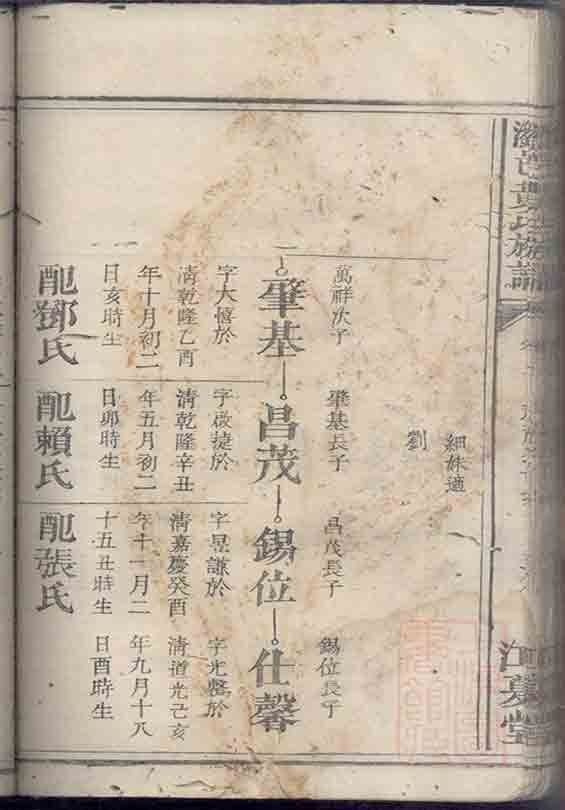 瀏邑黃氏族譜
江夏堂
細妹適
劉
萬祥次子
肇基
字大憘於
清乾隆乙酉
年十月初二
日亥時生
配鄧氏
肇基長子
昌茂
字啟捷於
清乾隆辛丑
年五月初二
日卯時生
配賴氏
昌茂長子
錫位
字昱謙於
清嘉慶癸酉
年十一月二
十五丑時生
配張氏
錫位長子
仕馨
字光盤於
清道光己亥
年九月十八
日酉時生